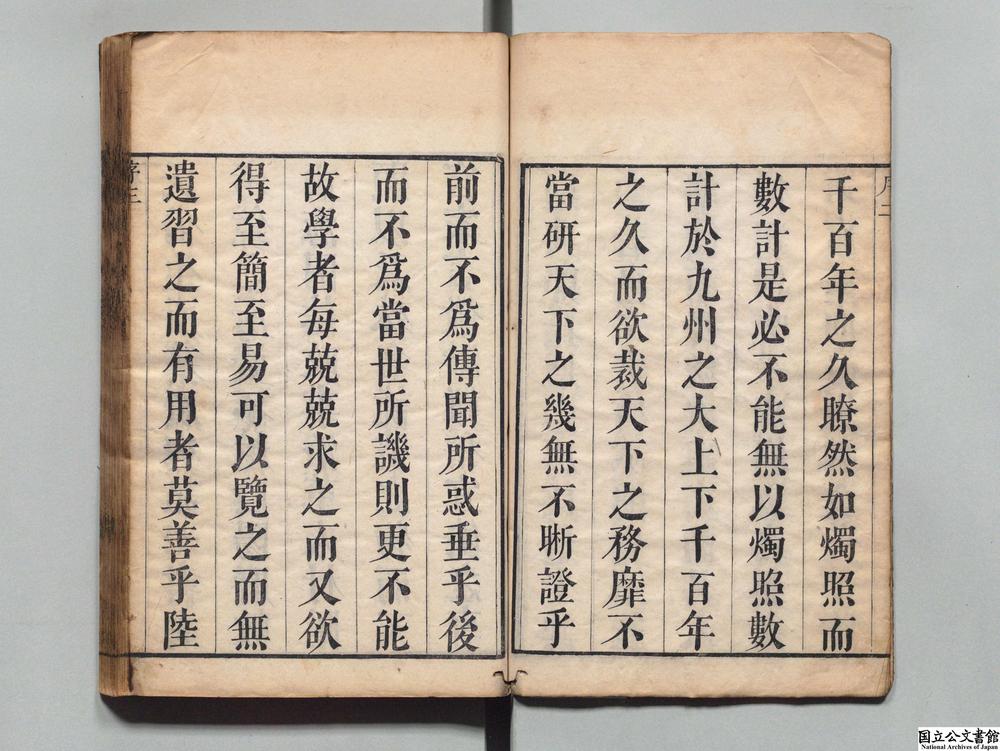 序二
千百年之久瞭然如燭照而
數計是必不能無以燭照數
計於九州之大上下千百年
之久而欲裁天下之務靡不
當研天下之幾無不晰證乎
前而不爲傳聞所惑垂乎後
而不爲當世所譏則更不能
故學者每兢兢求之而又欲
得至簡至易可以覽之而無
遺習之而有用者莫善乎陸
序三
国立公文書館
National Archives of Japan